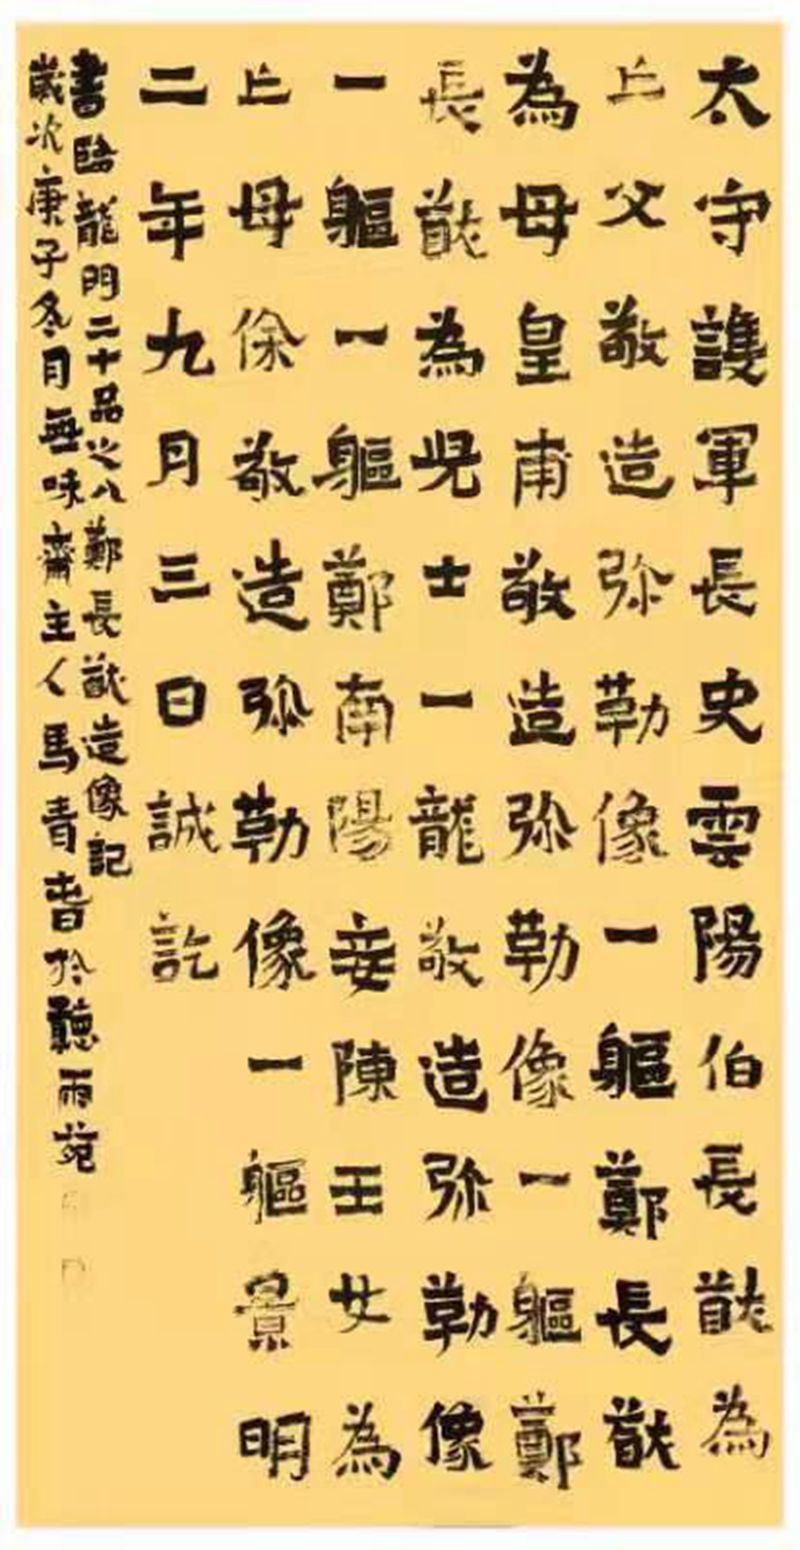 太守護軍長史雲陽伯長猷為
亡父敬造弥勒像一軀鄭長猷
為母皇甫敬造弥勒像一軀鄭
長猷為兒士一龍敬造弥勒像
一軀一軀鄭南陽妾陳王女為
亡母徐敬造弥勒像一軀景明
二年九月三日誠訖
書臨龍門二十品之八鄭長猷造像記
歲次庚子冬月無味齋主人馬青書於聽雨苑